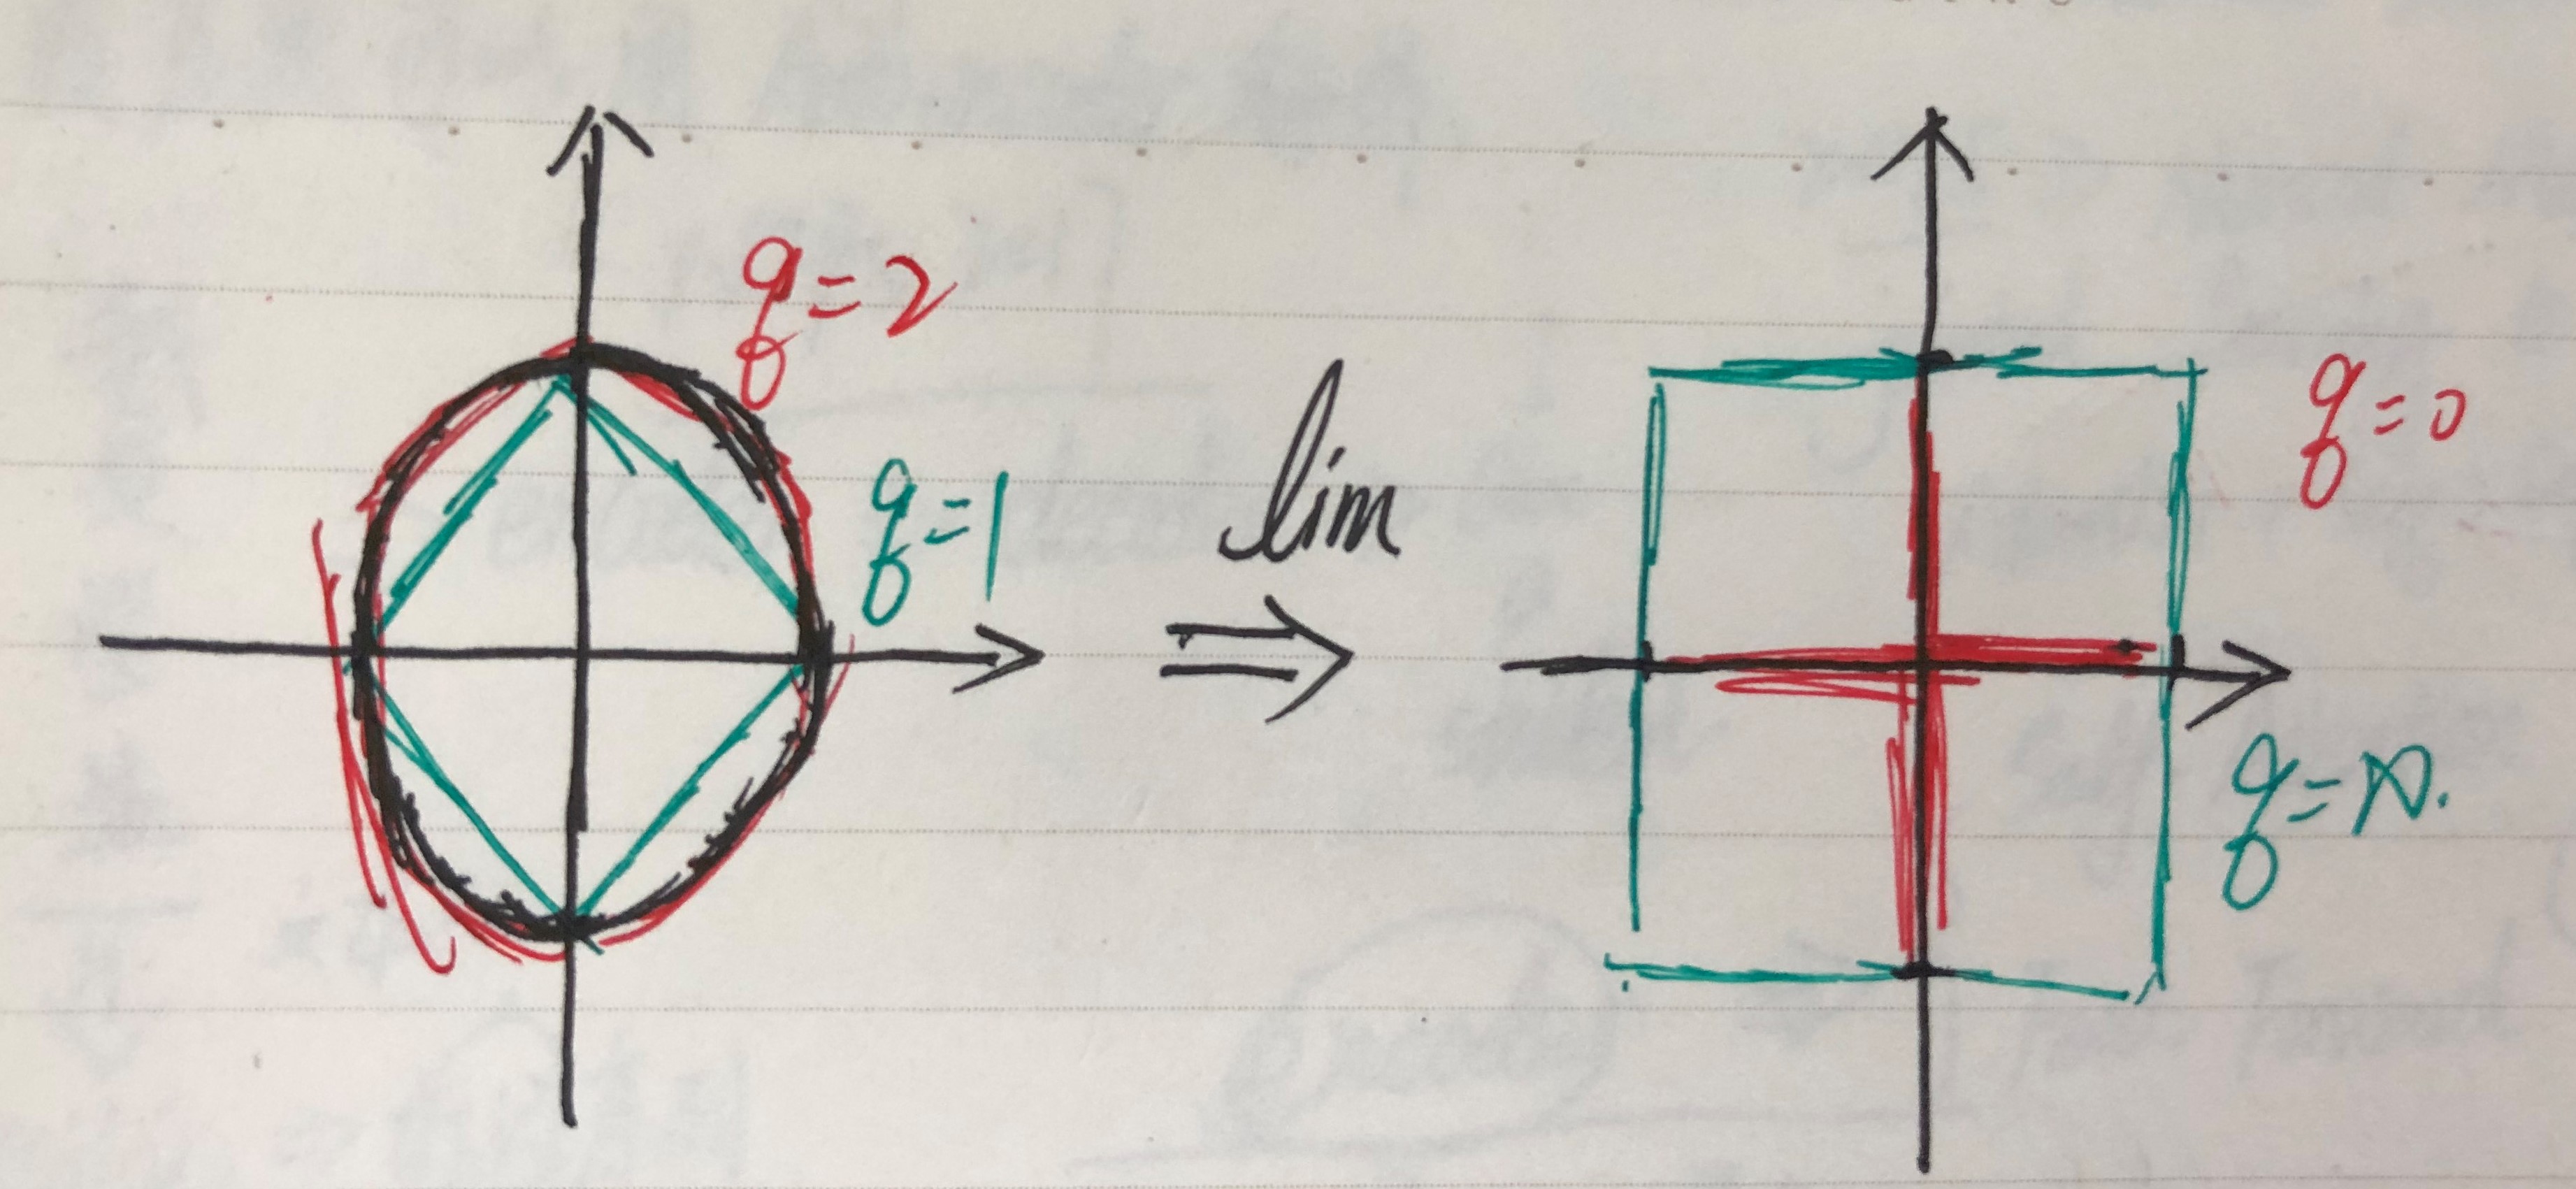 q=2
q=1
lim
⇒
q=0
q=∞.